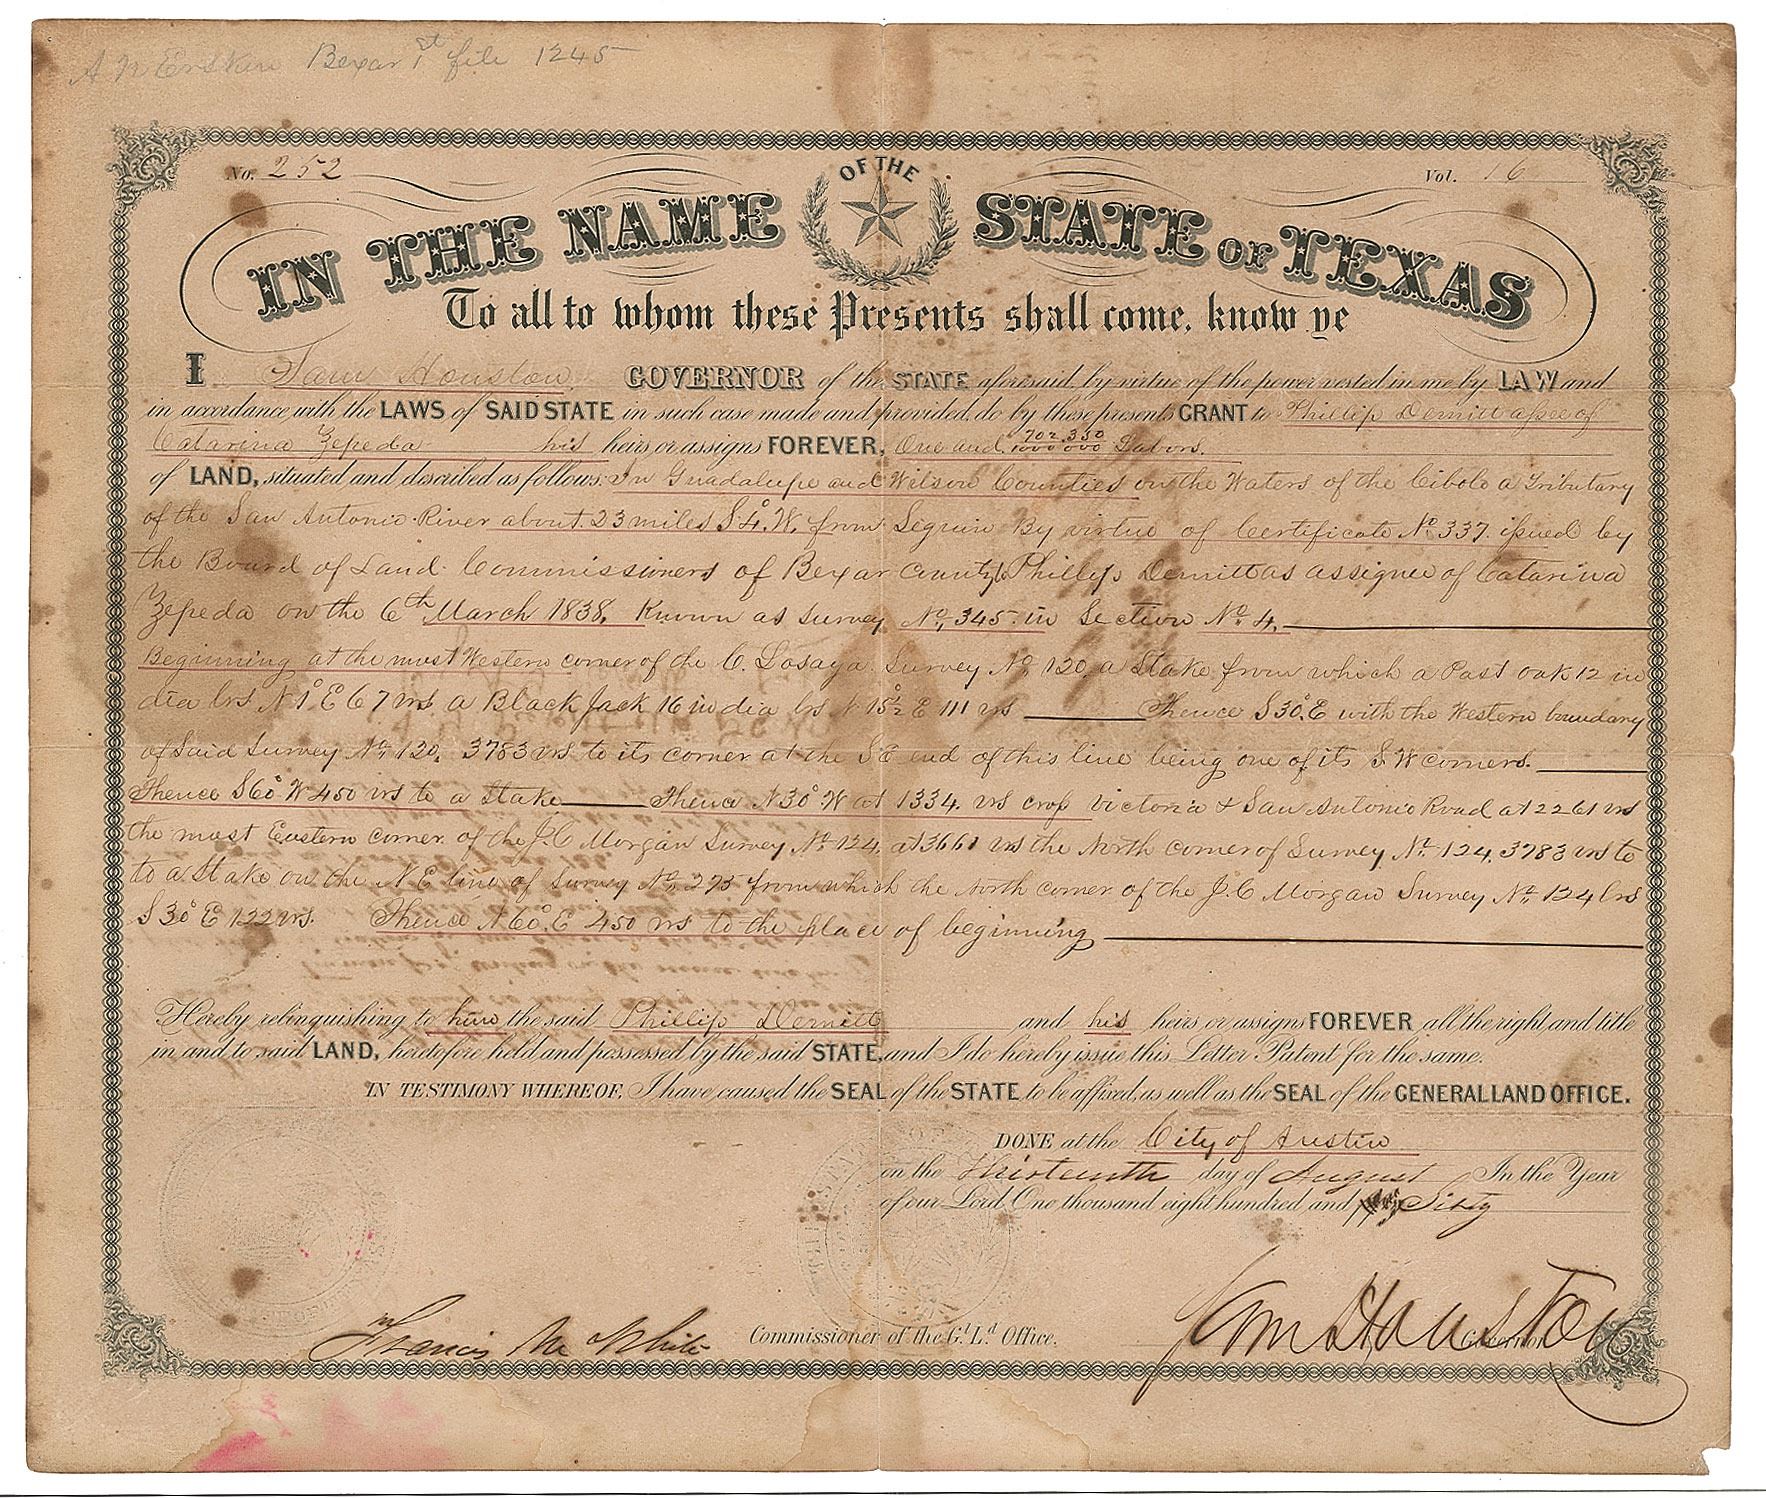 A N Erskine Bexar 1st file 1245
No. 252
Vol. 16
IN THE NAME OF THE STATE OF TEXAS
To all to whom these Presents shall come, know ye
I Sam Houston, GOVERNOR of the STATE aforesaid, by virtue of the power vested in me by LAW and
in accordance with the LAWS of SAID STATE in such case made and provided, do by these presents GRANT to Phillip Demitt assee of
Catarina Zepeda his heirs or assigns FOREVER, One and 702.350/1000000 Labors.
of LAND, situated and described as follows: In Guadalupe and Wilson Counties on the Waters of the Cibolo a Tributary
of the San Antonio River about 23 miles S 4° W. from Seguin By virtue of Certificate No 337. issued by
the Board of Land Commissioners of Bexar County to Phillip Demitt as assignee of Catarina
Zepeda on the 6th March 1838, Known as survey No, 345. in Section No 4,
Beginning at the most Western corner of the C. Losaya Survey No 120, a Stake from which a Post oak 12 in
dia brs N 1° E 67 vrs a Black Jack 16 in dia brs N 15½° E 111 vrs Thence S 30°. E with the Western boundary
of Said Survey No 120. 3783 vrs to its corner at the SE end of this line being one of its S. W corners.
Thence S 60° W 450 vrs to a Stake Thence N 30° W at 1334. vrs cross Victoria & San Antonio Road at 2261 vrs
the most Eastern corner of the J. C Morgan Survey No 124. at 3661 vrs the North corner of Survey No 124, 3783 vrs to
to a Stake on the N E line of Survey No 275 from which the North corner of the J. C Morgan Survey No 124 brs
S 30° E 122 vrs. Thence N 60°. E 450 vrs to the place of beginning
Hereby relinquishing to him the said Phillip Demitt and his heirs or assigns FOREVER all the right and title
in and to said LAND, heretofore held and possessed by the said STATE, and I do hereby issue this Letter Patent for the same.
IN TESTIMONY WHEREOF, I have caused the SEAL of the STATE to be affixed, as well as the SEAL of the GENERAL LAND OFFICE.
DONE at the City of Austin
on the Thirteenth day of August In the Year
of our Lord One thousand eight hundred and Sixty
Francis M White Commissioner of the Gl. Ld Office.
Sam Houston Governor